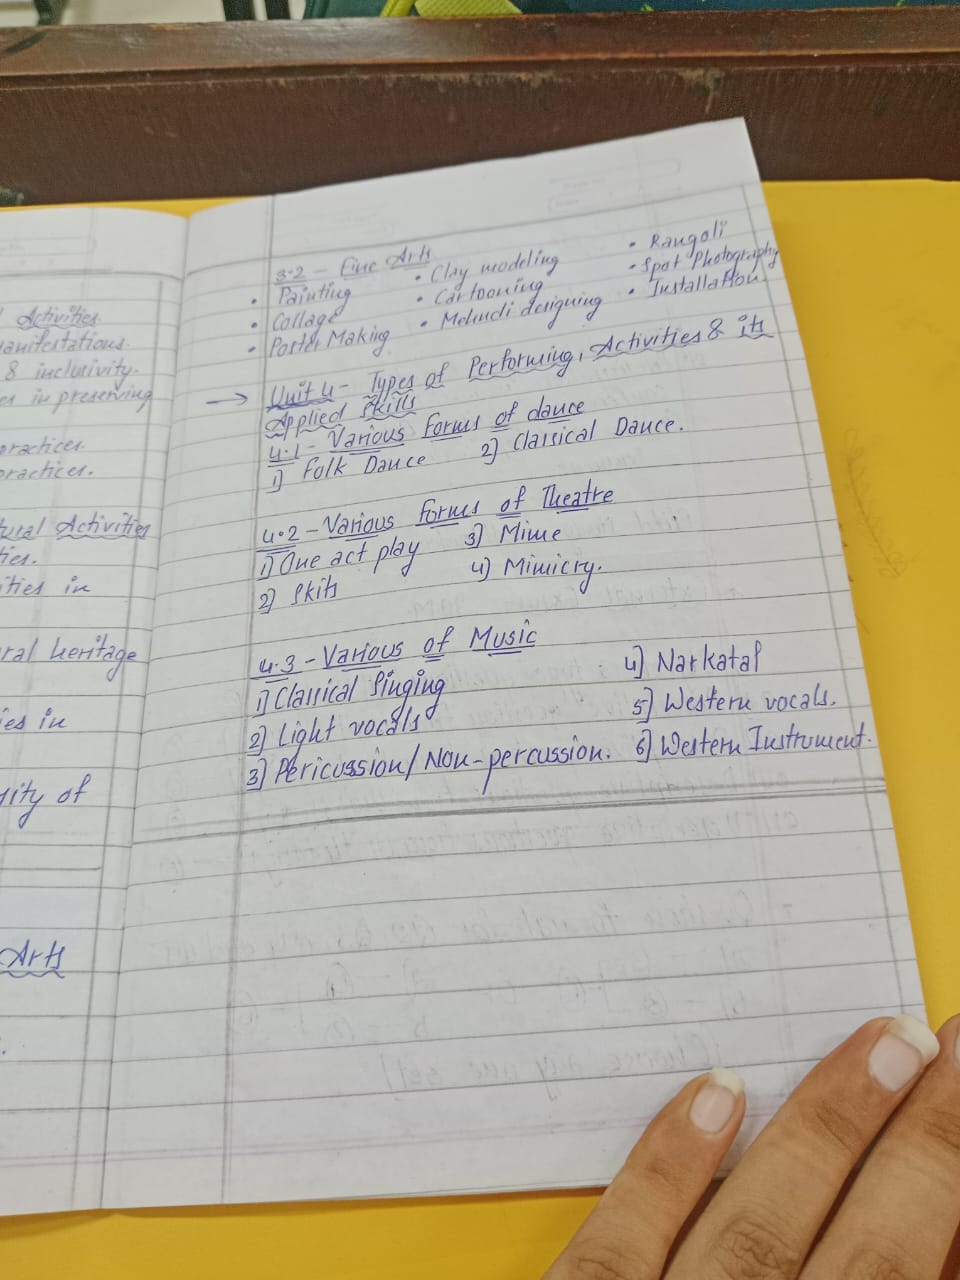 Activities
manifestations.
& inclutivity.
in preserving
practices.
practices.
Activities
ties.
ities in
heritage
ies in
of
Arts
3.2 - Fine Arts
• Painting • Clay modeling • Rangoli
• Collage • Cartooning • Spot Photography
• Poster Making • Mehndi designing • Installation.
→ Unit 4 - Types of Performing, Activities & its
Applied Skills
4.1 - Various Forms of dance
1) Folk Dance 2) Classical Dance.
4.2 - Various Forms of Theatre
1) One act play 3) Mime
2) Skits 4) Mimicry.
4.3 - Various of Music
1) Classical Singing 4) Narkatal
2) Light vocals 5) Western vocals.
3) Pericussion/Non-percussion. 6) Western Instrument.